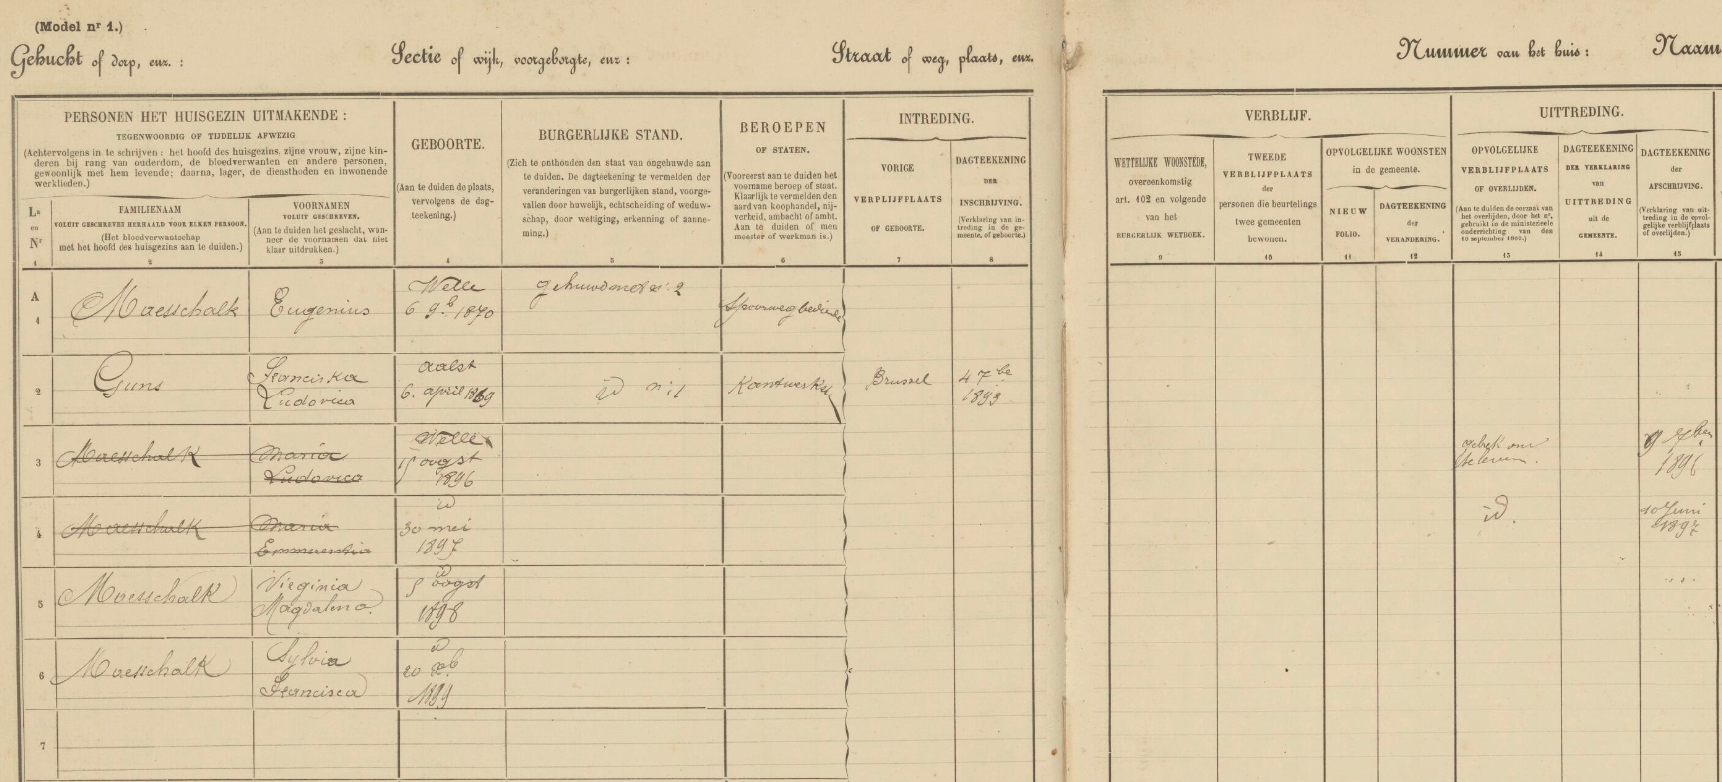 (Model nr 1.)
Gehucht of dorp, enz. :
Sectie of wijk, voorgeborgte, enz :
Straat of weg, plaats, enz.
Nummer van het huis :
Naam
PERSONEN HET HUISGEZIN UITMAKENDE :
TEGENWOORDIG OF TIJDELIJK AFWEZIG
(Achtervolgens in te schrijven : het hoofd des huisgezins, zijne vrouw, zijne kin-
deren bij rang van ouderdom, de bloedverwanten en andere personen,
gewoonlijk met hem levende; daarna, lager, de diensthoden en inwonende
werklieden.)
Ln
en
Nr
1
FAMILIENAAM
VOLUIT GESCHREVEN HERHAALD VOOR ELKEN PERSOON.
(Het bloedverwantschap
met het hoofd des huisgezins aan te duiden.)
2
VOORNAMEN
VOLUIT GESCHREVEN.
(Aan te duiden het geslacht, wan-
neer de voornamen dat niet
klaar uitdrukken.)
3
GEBOORTE.
(Aan te duiden de plaats,
vervolgens de dag-
teekening.)
4
BURGERLIJKE STAND.
(Zich te onthouden den staat van ongehuwde aan
te duiden. De dagteekening te vermelden der
veranderingen van burgerlijken stand, voorge-
vallen door huwelijk, echtscheiding of weduw-
schap, door wettiging, erkenning of aanne-
ming.)
5
BEROEPEN
OF STATEN.
(Vooreerst aan te duiden het
voorname beroep of staat.
Klaarlijk te vermelden den
aard van koophandel, nij-
verheid, ambacht of ambt.
Aan te duiden of men
meester of werkman is.)
6
INTREDING.
VORIGE
VERPLIJFPLAATS
OF GEBOORTE.
7
DAGTEEKENING
DER
INSCHRIJVING.
(Verklaring van in-
treding in de ge-
meente, of geboorte.)
8
VERBLIJF.
WETTELIJKE WOONSTEDE,
overeenkomstig
art. 102 en volgende
van het
BURGERLIJK WETBOEK.
9
TWEEDE
VERBLIJFPLAATS
der
personen die beurtelings
twee gemeenten
bewonen.
10
OPVOLGELIJKE WOONSTEN
in de gemeente.
NIEUW
FOLIO.
11
DAGTEEKENING
der
VERANDERING.
12
UITTREDING.
OPVOLGELIJKE
VERBLIJFPLAATS
OF OVERLIJDEN.
(Aan te duiden de oorzaak van
het overlijden, door het nr,
gebruikt in de ministerieele
onderrichting van den
13
DAGTEEKENING
DER VERKLARING
van
UITTREDING
uit de
GEMEENTE.
14
DAGTEEKENING
der
AFSCHRIJVING.
(Verklaring van uit-
treding in de opvol-
gelijke verblijfplaats
of overlijden.)
15
A
1
Moesschalk Eugenius
Welle
6 9b 1870
gehuwd met nr 2
Spoorwegbediende
2
Guns
Franciska
Ludovica
Aalst
6. april 1869
id nr 1
Kantwerkster
Brussel
4 7be
1893
3
Moesschalk
Maria
Ludovica
Welle
15 oogst
1896
gebrek aan
te leven.
9 7ber
1896
4
Moesschalk
Maria
id
30 mei
1897
id.
10 Juni
1897
5
Moesschalk
Virginia
Magdalena
id
5 oogst
1898
6
Moesschalk
Sylvia
Francisca
id
20
1899
7